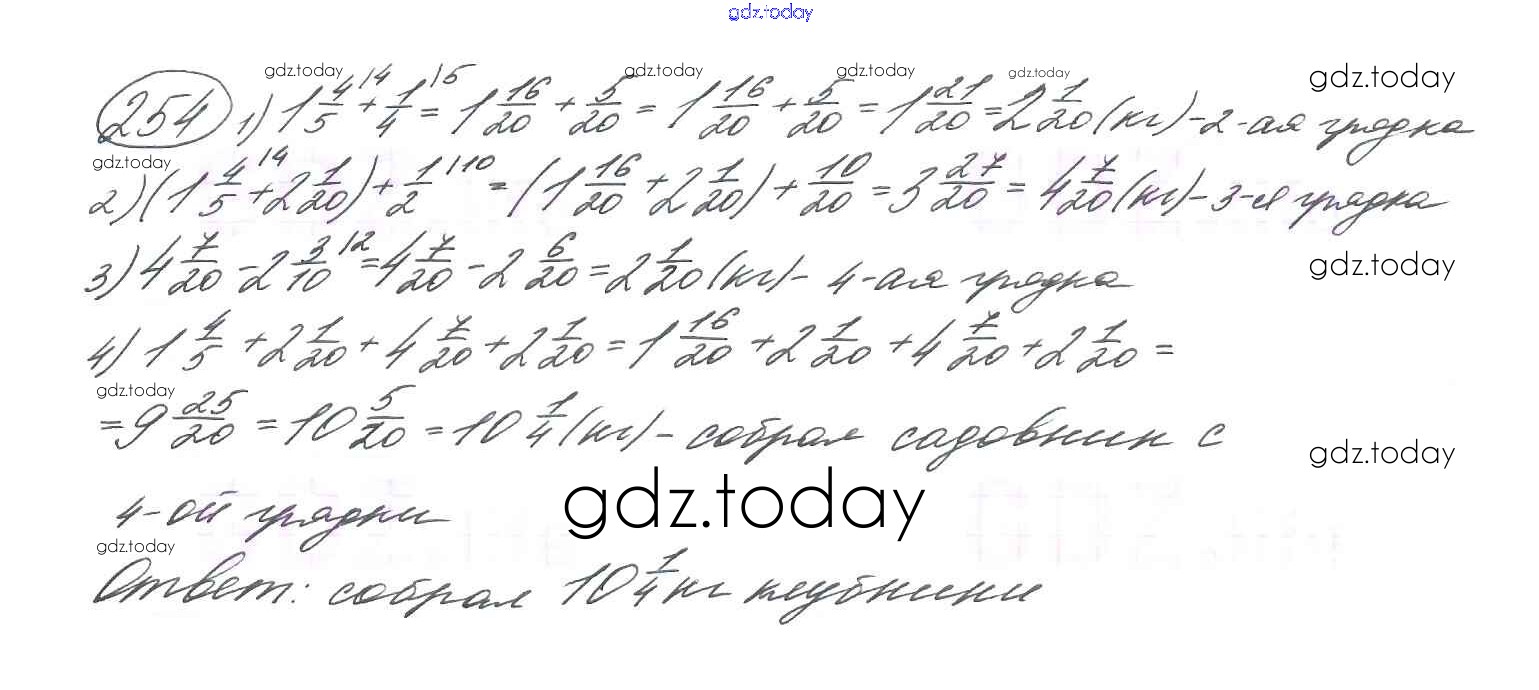 gdz.today
gdz.today gdz.today gdz.today gdz.today gdz.today
254 1) 1 4/5 |4 + 1/4 |5 = 1 16/20 + 5/20 = 1 16/20 + 5/20 = 1 21/20 = 2 1/20 (кг) - 2-ая грядка
gdz.today
2) (1 4/5 |4 + 2 1/20) + 1/2 |10 = (1 16/20 + 2 1/20) + 10/20 = 3 27/20 = 4 7/20 (кг) - 3-я грядка
3) 4 7/20 - 2 3/10 |2 = 4 7/20 - 2 6/20 = 2 1/20 (кг) - 4-ая грядка
gdz.today
4) 1 4/5 + 2 1/20 + 4 7/20 + 2 1/20 = 1 16/20 + 2 1/20 + 4 7/20 + 2 1/20 =
gdz.today
= 9 25/20 = 10 5/20 = 10 1/4 (кг) - собрал садовник с
gdz.today
4-ой грядки
gdz.today
gdz.today
Ответ: собрал 10 1/4 кг клубники